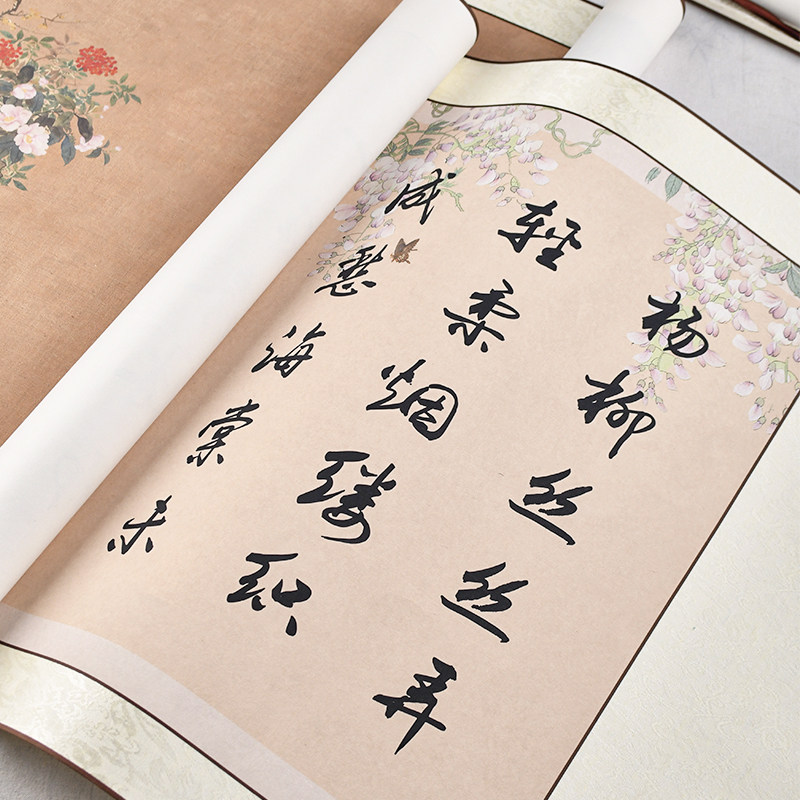 杨柳丝丝弄
轻柔烟缕织
成愁海棠未